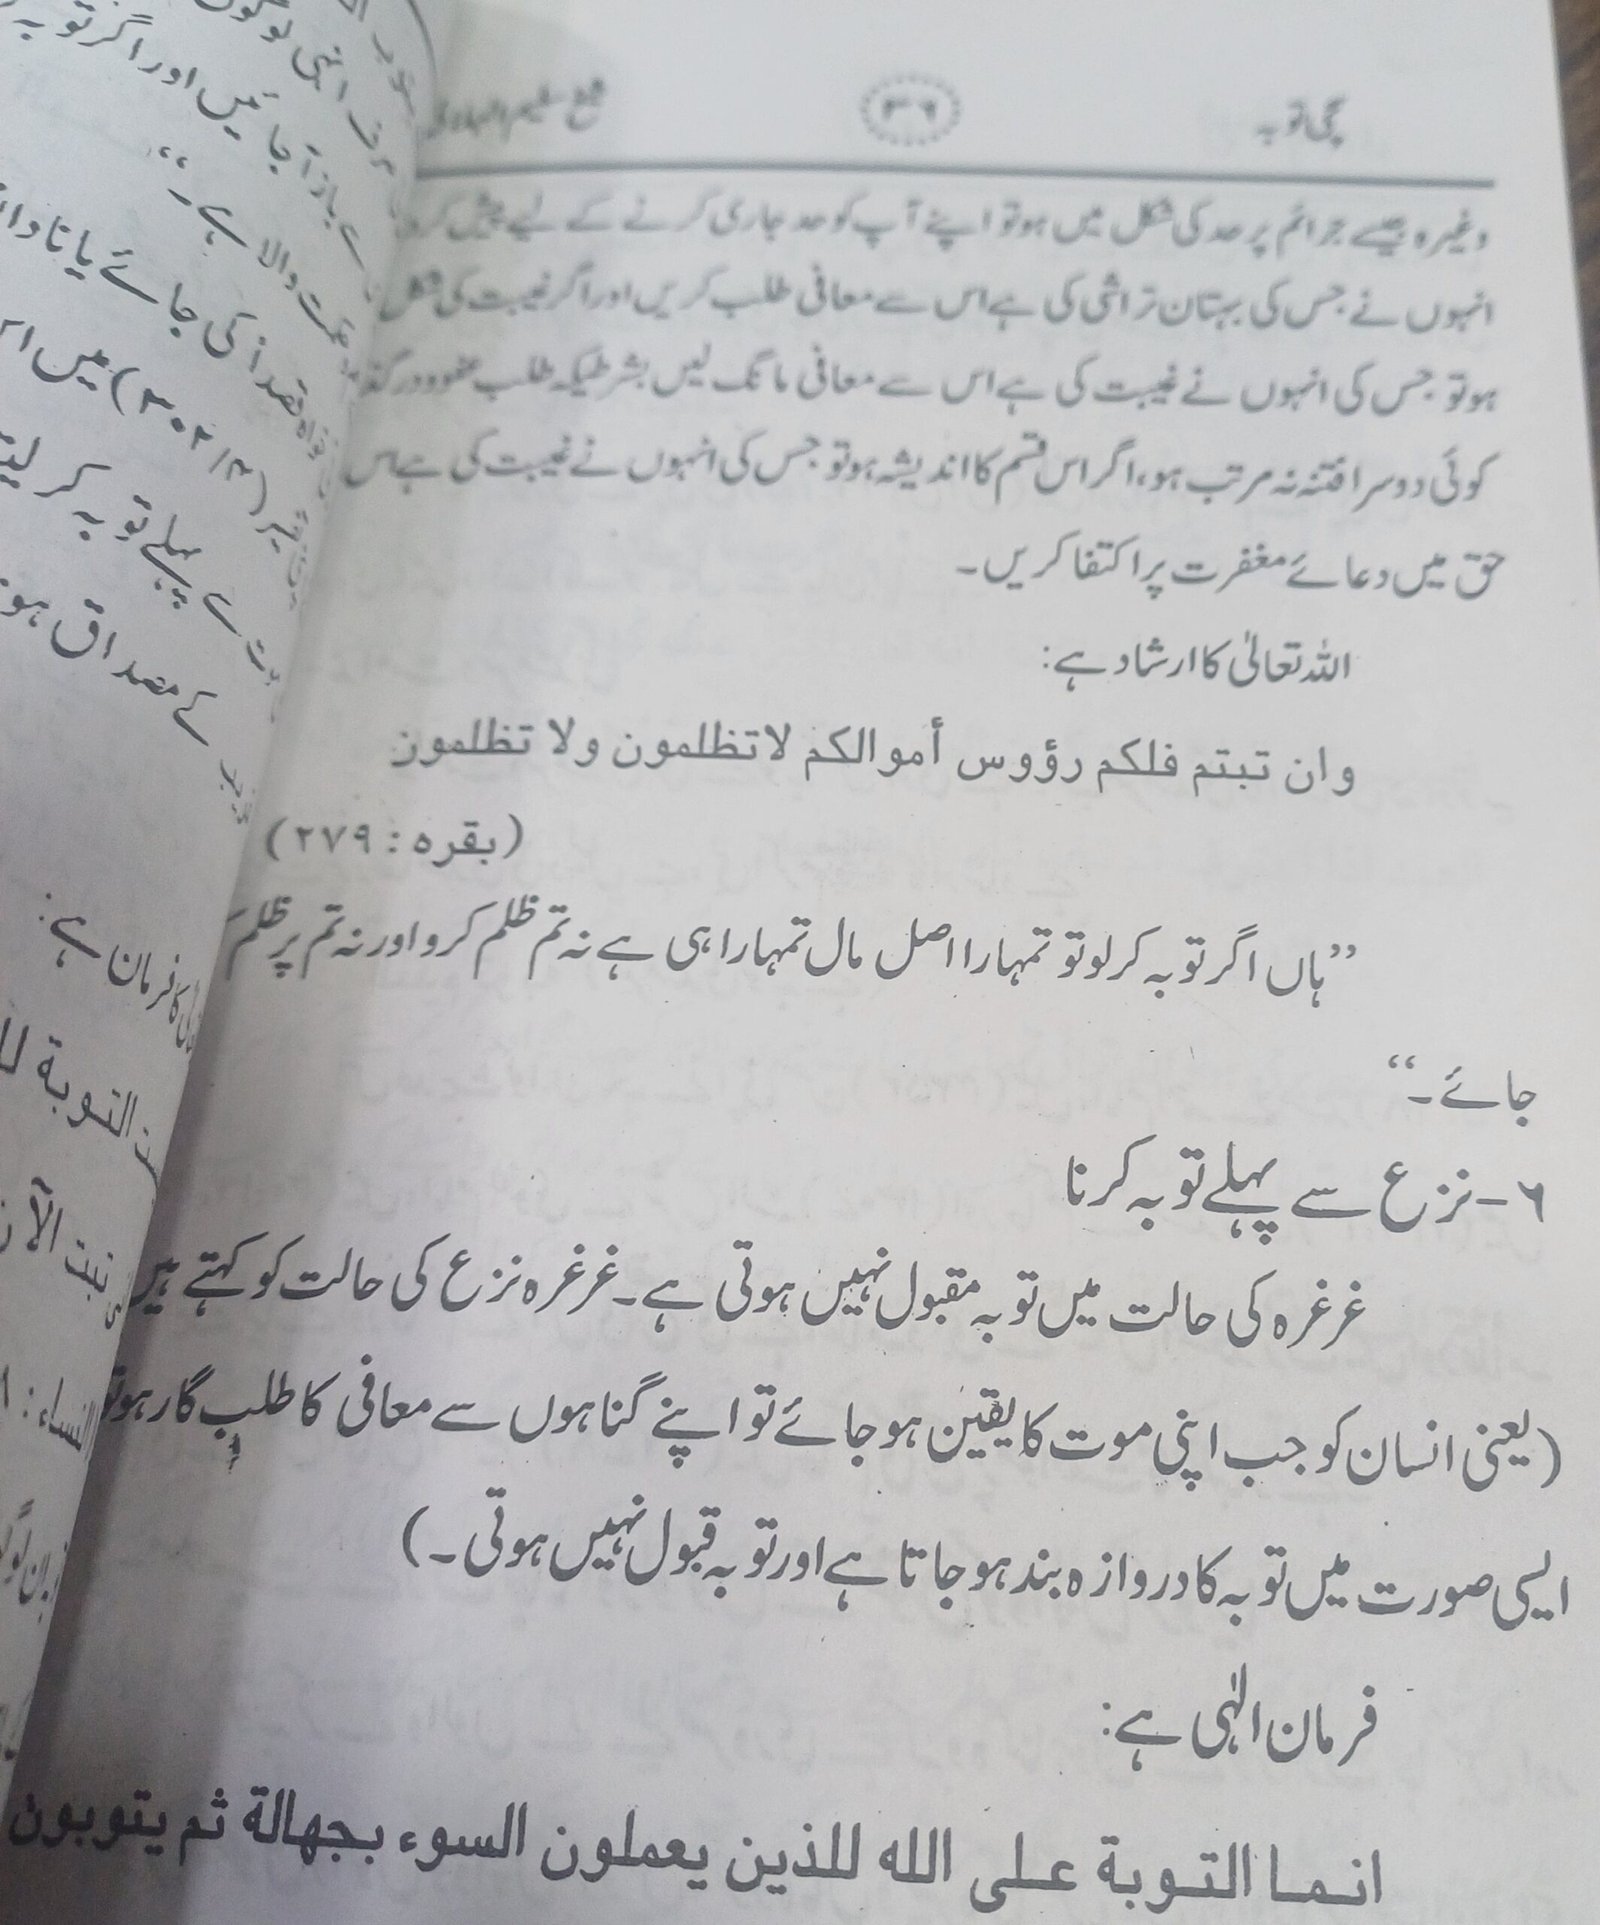 سچی توبہ
۳۹
شیخ سلیم الہلالی
وغیرہ جیسے جرائم پر حد کی شکل میں ہو تو اپنے آپ کو حد جاری کرنے کے لیے پیش کر
انہوں نے جس کی بہتان تراشی کی ہے اس سے معافی طلب کریں اور اگر غیبت کی شکل
ہو تو جس کی انہوں نے غیبت کی ہے اس سے معافی مانگ لیں بشرطیکہ طلب عفو و درگذر
کوئی دوسرا فتنہ نہ مرتب ہو، اگر اس قسم کا اندیشہ ہو تو جس کی انہوں نے غیبت کی ہے اس
حق میں دعائے مغفرت پر اکتفا کریں۔
اللہ تعالیٰ کا ارشاد ہے:
وان تبتم فلكم رؤوس أموالكم لاتظلمون ولا تظلمون
(بقرہ : ۲۷۹)
”ہاں اگر توبہ کرلو تو تمہارا اصل مال تمہارا ہی ہے نہ تم ظلم کرو اور نہ تم پر ظلم
جائے۔“
۶-نزع سے پہلے توبہ کرنا
غرغرہ کی حالت میں توبہ مقبول نہیں ہوتی ہے۔ غرغرہ نزع کی حالت کو کہتے ہیں
(یعنی انسان کو جب اپنی موت کا یقین ہو جائے تو اپنے گناہوں سے معافی کا طلب گار ہو تو
ایسی صورت میں توبہ کا دروازہ بند ہو جاتا ہے اور توبہ قبول نہیں ہوتی۔)
فرمان الٰہی ہے:
انما التوبة على الله للذين يعملون السوء بجهالة ثم يتوبون
باز آ جائیں اور اگر توبہ
والا ہے۔“
نقد ادا کی جائے یا تاوان
(۳۰۲/۳) میں اس
سے پہلے توبہ کر لیتے
کے مصداق ہو
کا فرمان ہے:
التوبة
تبت الآن
النساء :